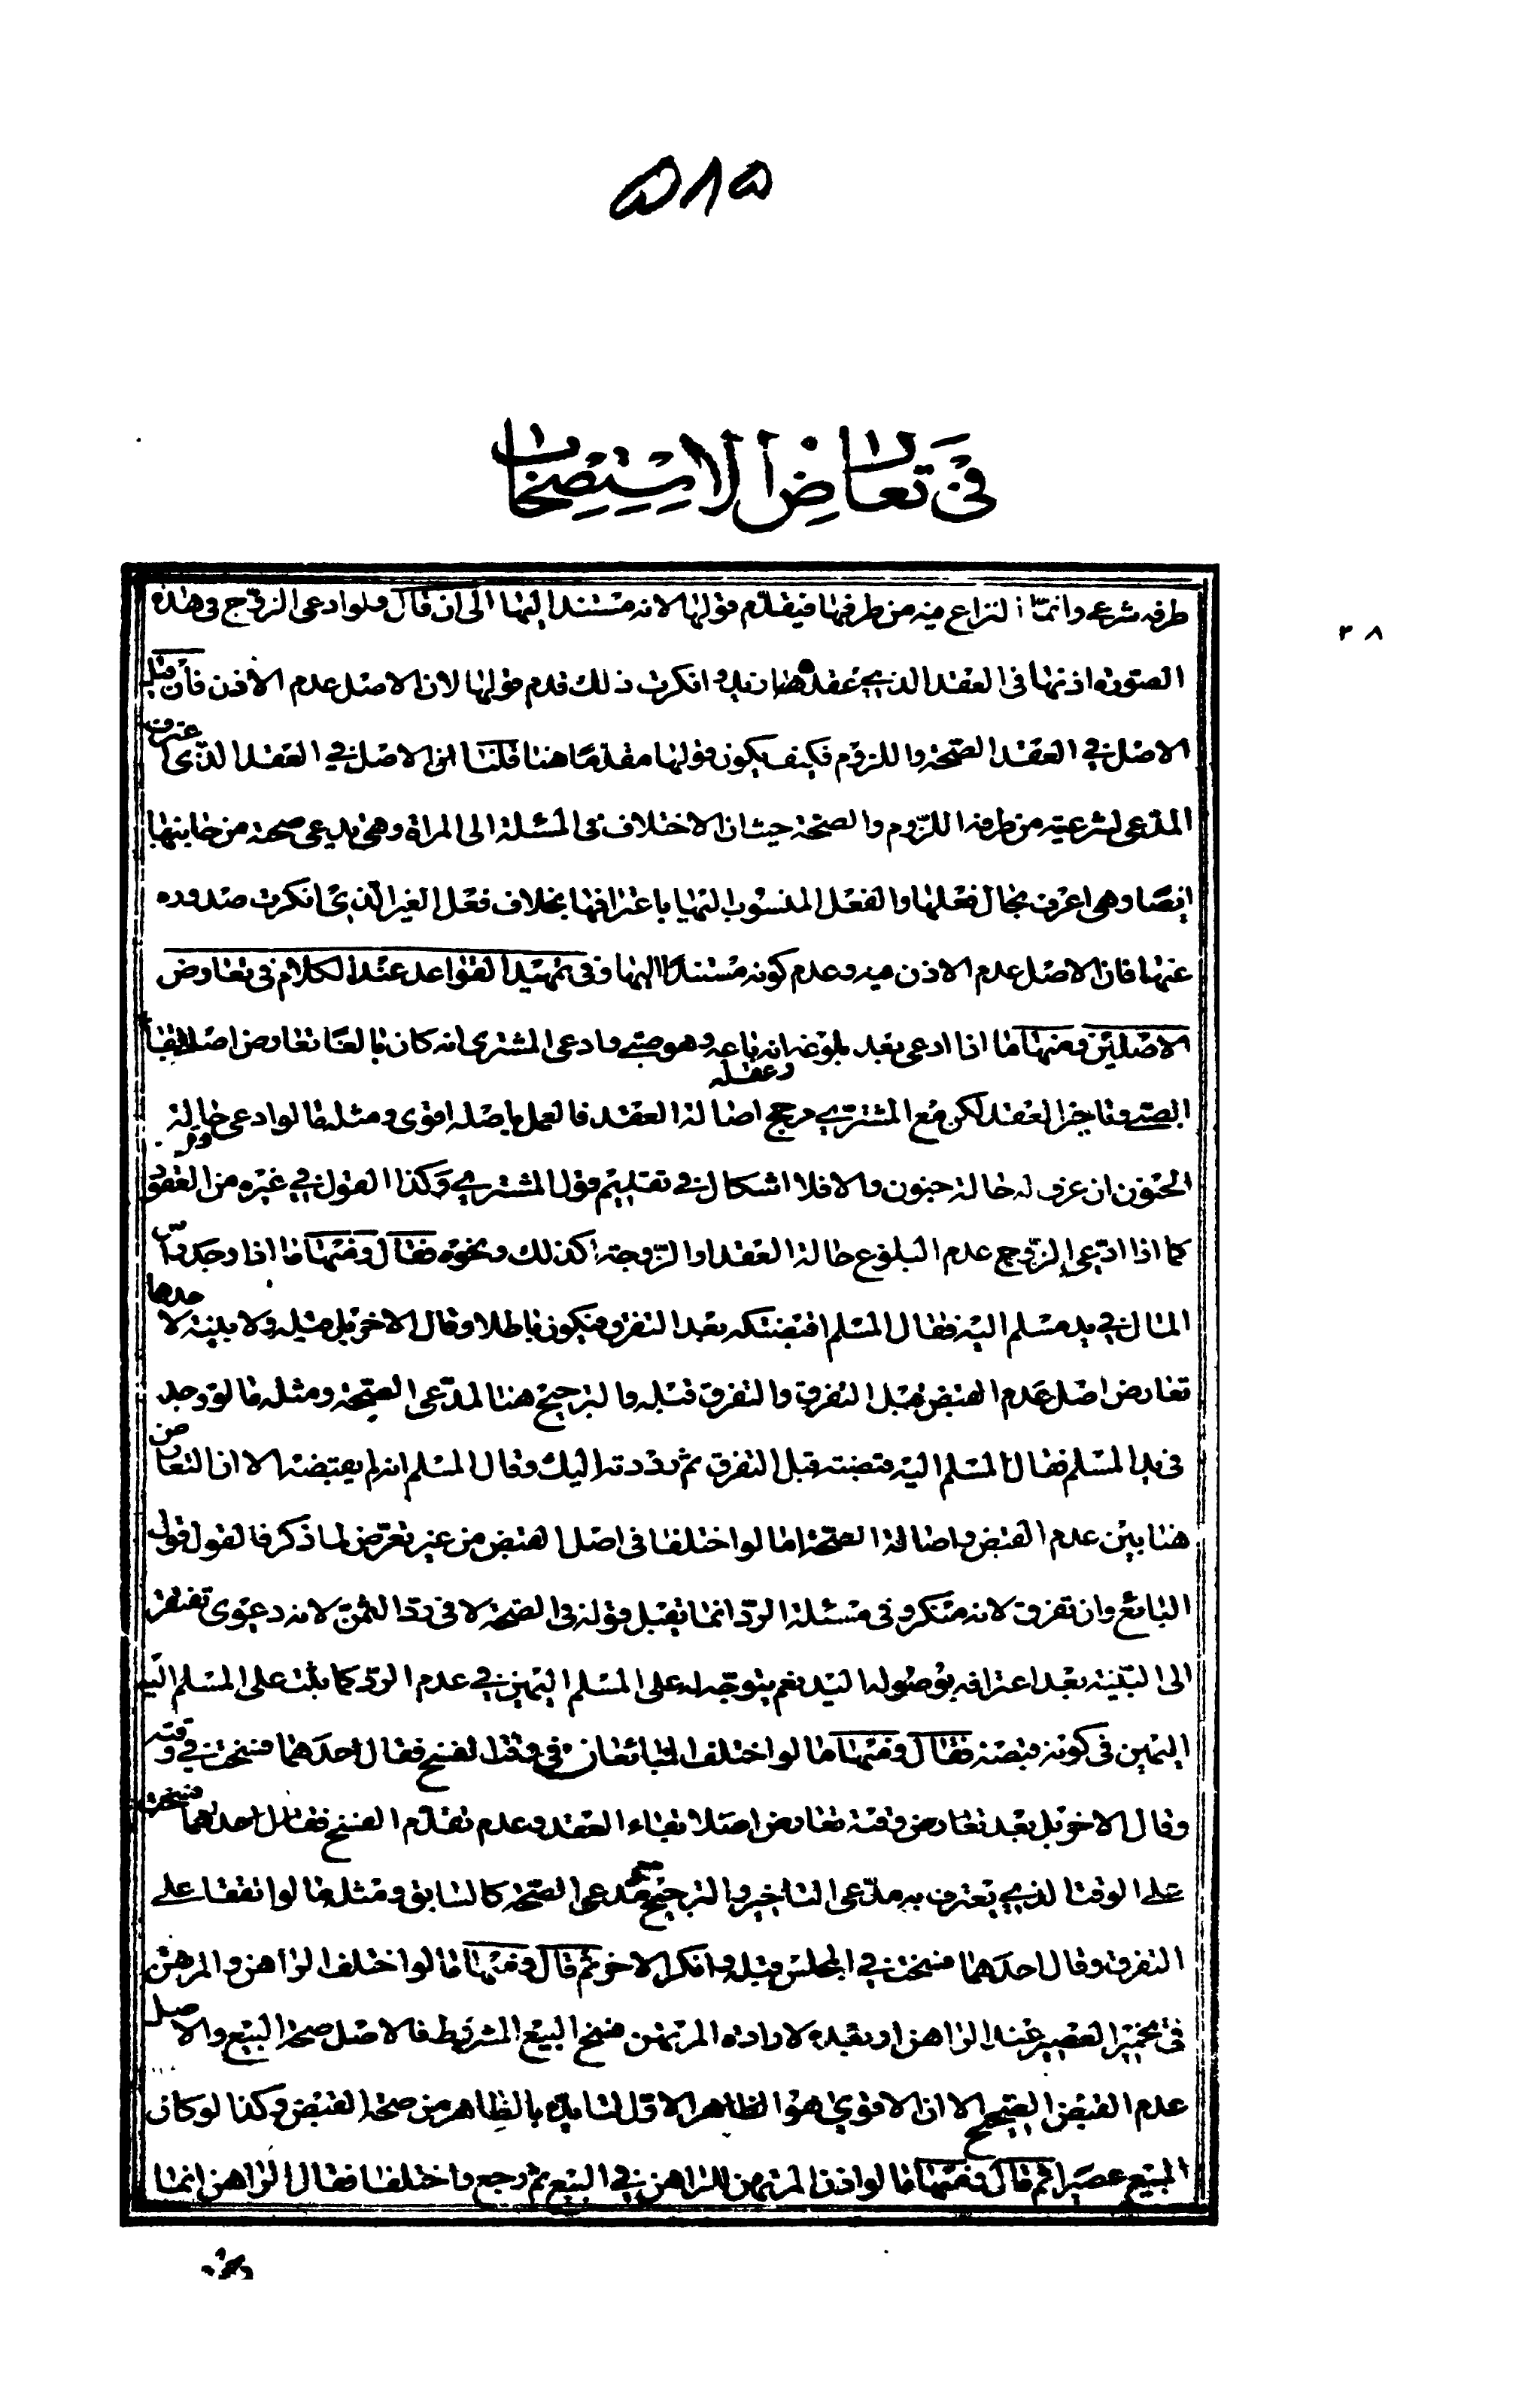 ٥٨٥
في تعارض الاستصحاب
٢٨
طرفه شرعى وانما النزاع فيه من طرفها فيقدم قولها لانه مستند اليها الى ان قال ولو ادعى الزوج في هذه
الصورة اذنها فى العقد الذي عقد وانكرت ذلك قدم قولها لان الاصل عدم الاذن فان قيل
الاصل في العقد الصحة واللزوم فكيف يكون قولها مقدما هنا قلنا ان الاصل في العقد الذى اعترف
المدعى لشرعيته من طرفه اللزوم والصحة حيث ان الاختلاف فى المسئلة الى المراة وهى يدعى صحته من جانبها
ايضا وهى اعرف بحال فعلها والفعل المنسوب اليها باعترافها بخلاف فعل الغير الذى انكرت صدوره
عنها فان الاصل عدم الاذن فيه وعدم كونه مستندا اليها وفى تمهيد القواعد عند الكلام فى تعارض
الاصلين ومنها ما اذا ادعى بعد بلوغه انه باعه وهو صبي وادعى المشترى انه كان بالغا تعارض اصلا بقاء
الصبى وتاخر العقد لكن مع المشتري مرجح اصالة العقد فالعمل باصله اقوى ومثله ما لو ادعى حالة
الجنون ان عرف له حالة جنون والا فلا اشكال في تقديم قول المشتري وكذا القول في غيره من العقود
كما اذا ادعى الزوج عدم البلوغ حالة العقد او الزوجة كذلك ونحوه فقال ومنها ما اذا وجد راس
المال في يد مسلم اليه فقال المسلم اقبضتكه بعد التفرق فيكون باطلا وقال الاخر بل قبله ولا بينة لاحدهما
تعارض اصل عدم القبض قبل التفرق والتفرق قبله والترجيح هنا لمدعى الصحة ومثله ما لو وجد
فى يد المسلم فقال المسلم اليه قبضته قبل التفرق ثم رددته اليك وقال المسلم انه لم يقبضه الا ان التعارض
هنا بين عدم القبض واصالة الصحة اما لو اختلفا فى اصل القبض من غير تعرض لما ذكر فالقول قول
البائع وان تفرق لانه منكر وفى مسئلة الرد انما يقبل قوله فى الصحة لا فى رد الثمن لانه دعوى تفتقر
الى البينة بعد اعترافه بوصوله اليه نعم يتوجه له على المسلم اليمين في عدم الرد كما يثبت على المسلم اليه
اليمين فى كونه قبضه فقال ومنها ما لو اختلف المتبائعان فى وقت الفسخ فقال احدهما فسخت في وقته
وقال الاخر بل بعد تعارض وقته تعارض اصلا بقاء العقد وعدم تقدم الفسخ فقال احدهما فسخت
على الوقت الذي يعترف به مدعى التاخير والترجيح مع مدعى الصحة كالسابق ومثله ما لو اتفقا على
التفرق وقال احدهما فسخت في المجلس قبله وانكر الاخر ثم قال ومنها ما لو اختلف الراهن والمرتهن
في تخمير العصير عند الراهن او بعده لارادة المرتهن فسخ البيع المشترط فالاصل صحة البيع والاصل
عدم القبض الصحيح الا ان الاقوى هو الظاهر الاول لتاييده بالظاهر من صحة القبض وكذا لو كان
المبيع عصيرا ثم قال ومنها ما لو اذن المرتهن للراهن في البيع ثم رجع واختلفا فقال الراهن انما